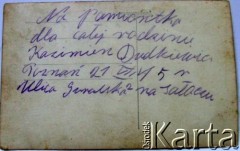 Na pamiątkę
dla całej rodziny
Kazimierz Dudkiewicz
Poznań 21 5 r
Ulica na
Ośrodek
Karta